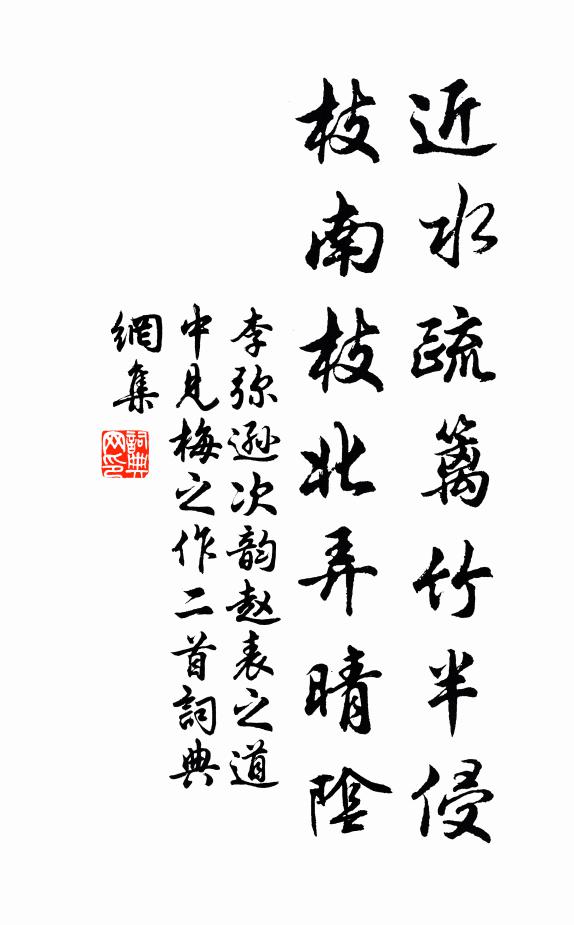 近水疏籬竹半侵
枝南枝北弄晴陰
李弥遜次韵赵表之道
中見梅之作二首詞典
網集
詞典
网印